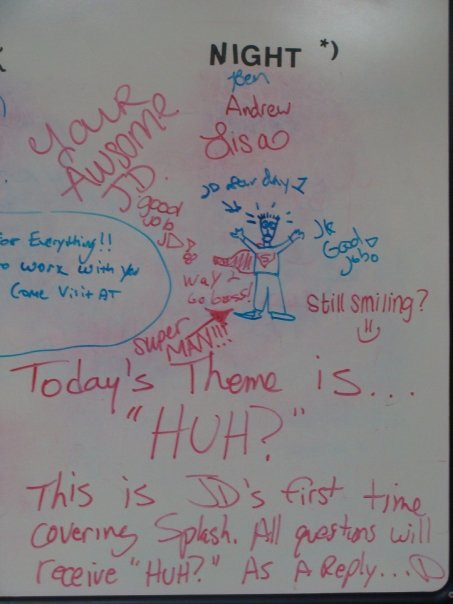 NIGHT *)
Ben
Andrew
Lisa
Your
Awsome
JD.
good
job
JD
JD year day 1
JK
Good
jobo
way 2
Go boss!
Super
MAN!!!
Still smiling?
For Everything!!
to work with you
Come Visit AT
Today's Theme is...
"HUH?"
This is JD's first time
covering Splash. All questions will
receive "HUH?" As A Reply...